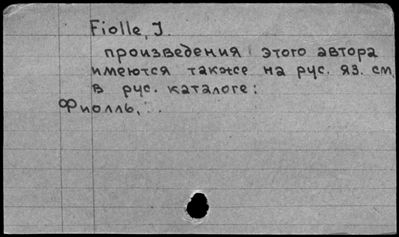 Fiolle, J.
произведения этого автора
имеются также на рус. яз. см.
в рус. каталоге:
Фиолль,